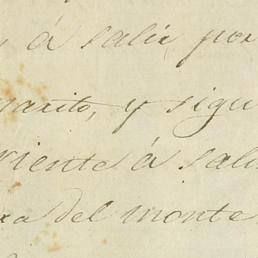 á salir por
garito, y sigu
riente á sali
xa del monte